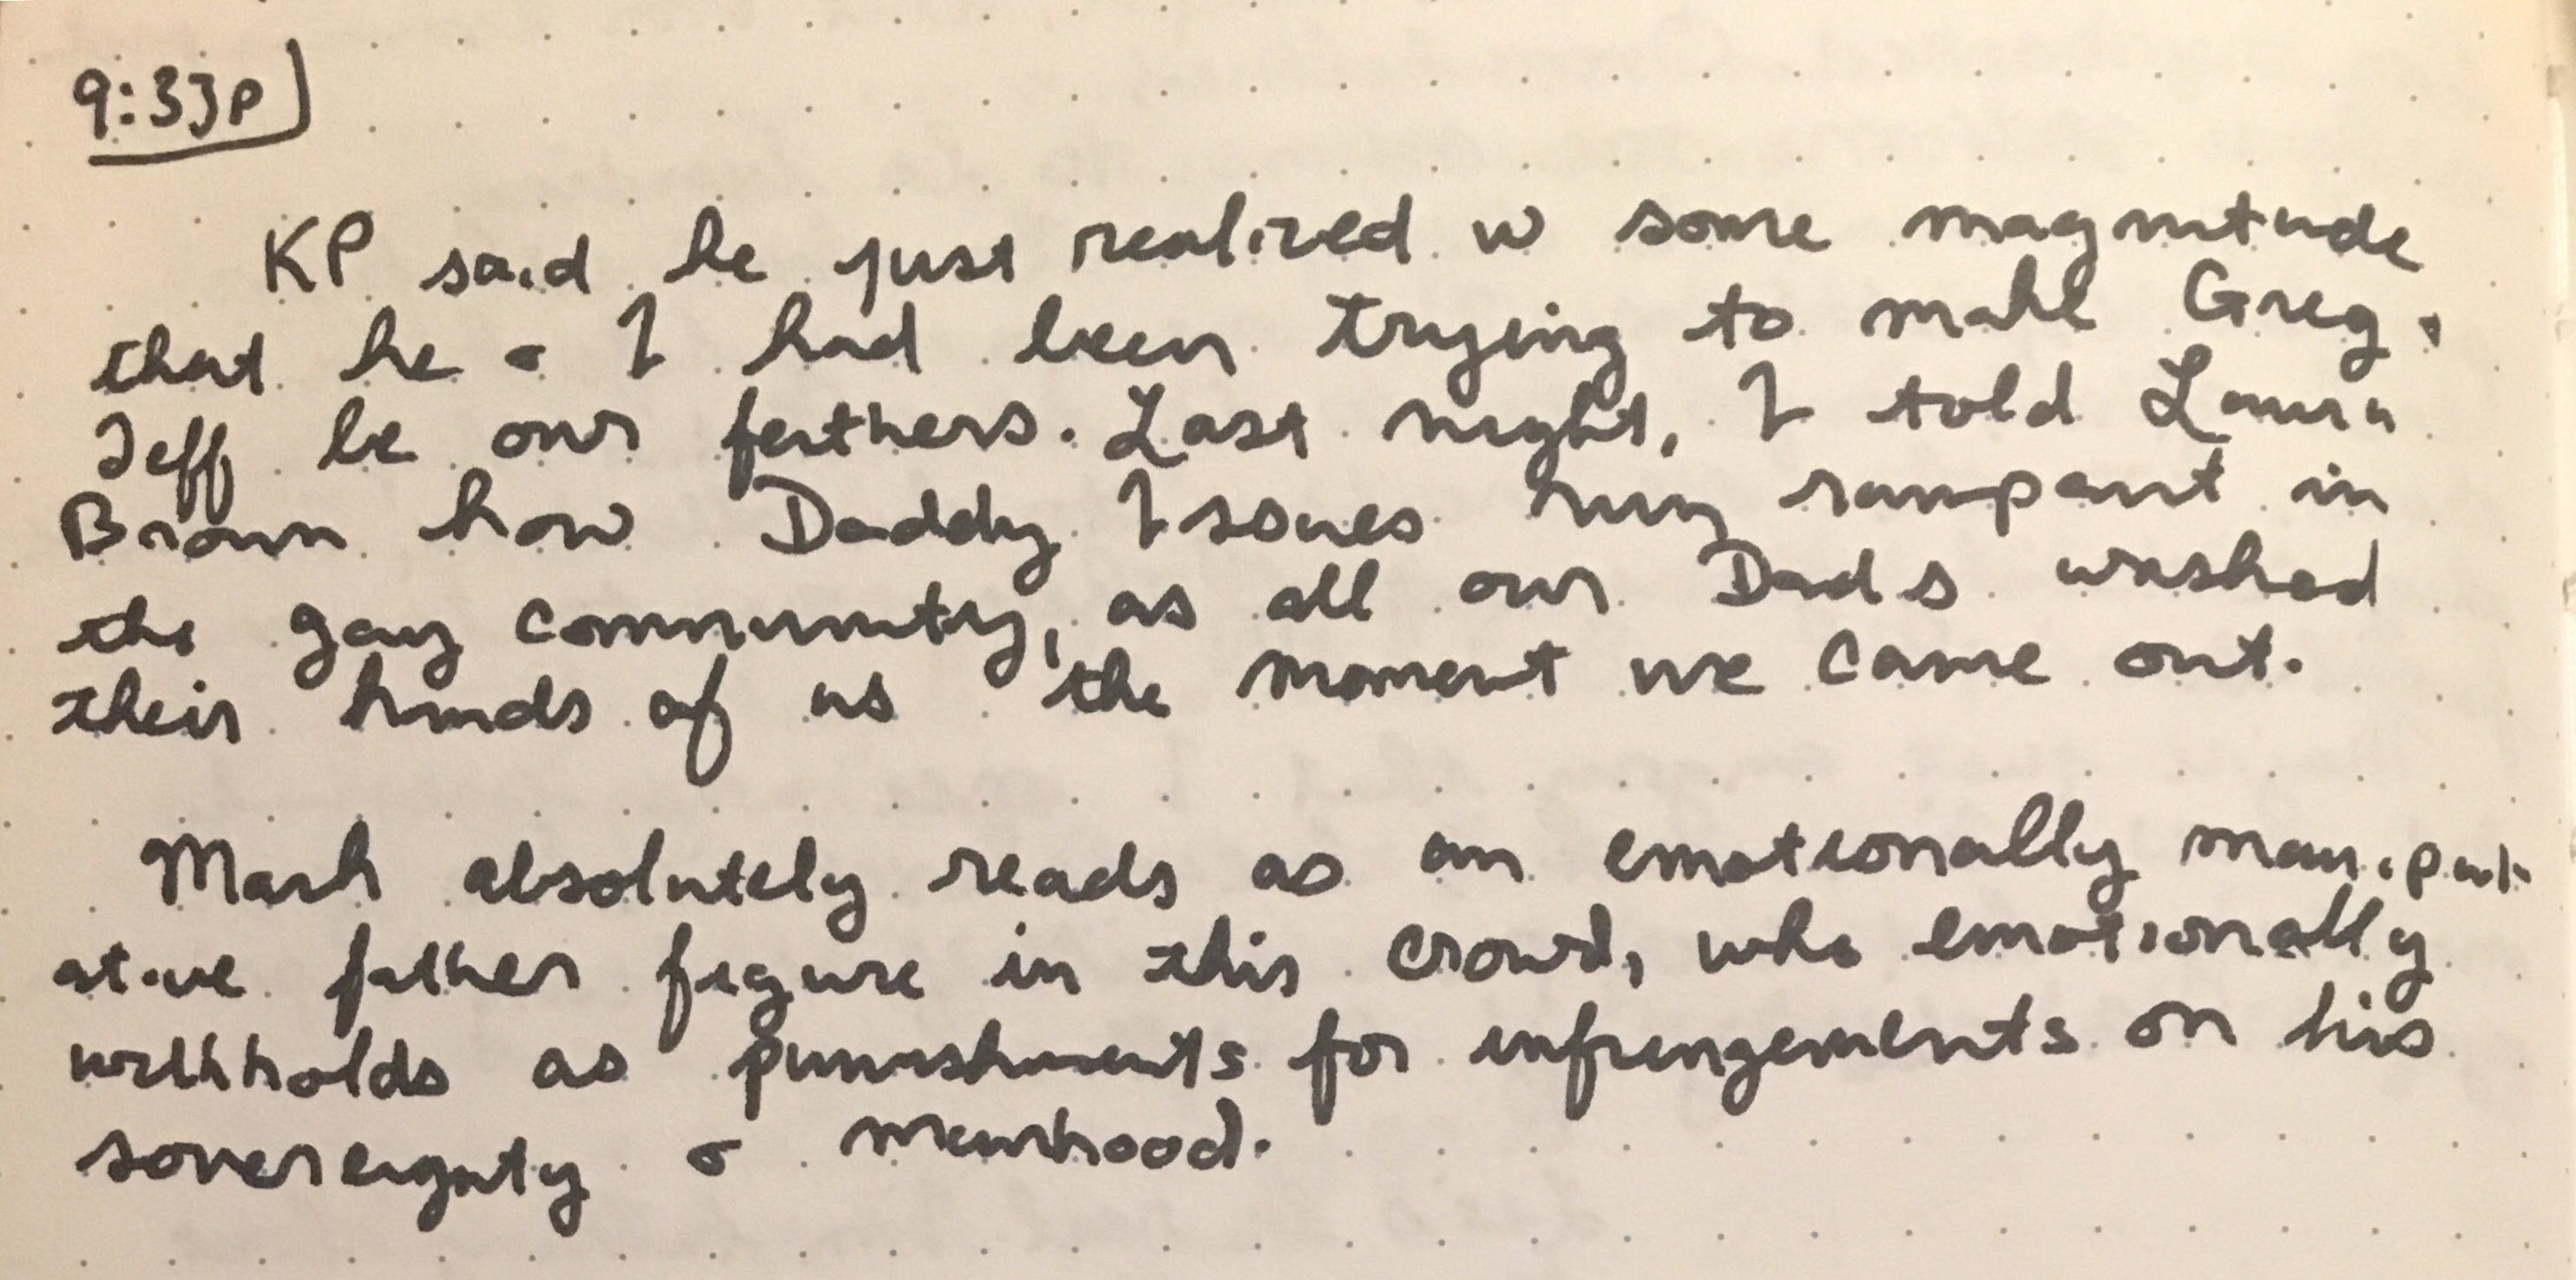 9:33p
KP said he just realized w some magnitude
that he & I had been trying to make Greg,
Jeff be our fathers. Last night, I told Laura
Brown how Daddy Issues run rampant in
the gay community, as all our Dads washed
their hands of us the moment we came out.
Mark absolutely reads as an emotionally manipul
ative father figure in this crowd, who emotionally
withholds as punishments for infringements on his
sovereignty & manhood.